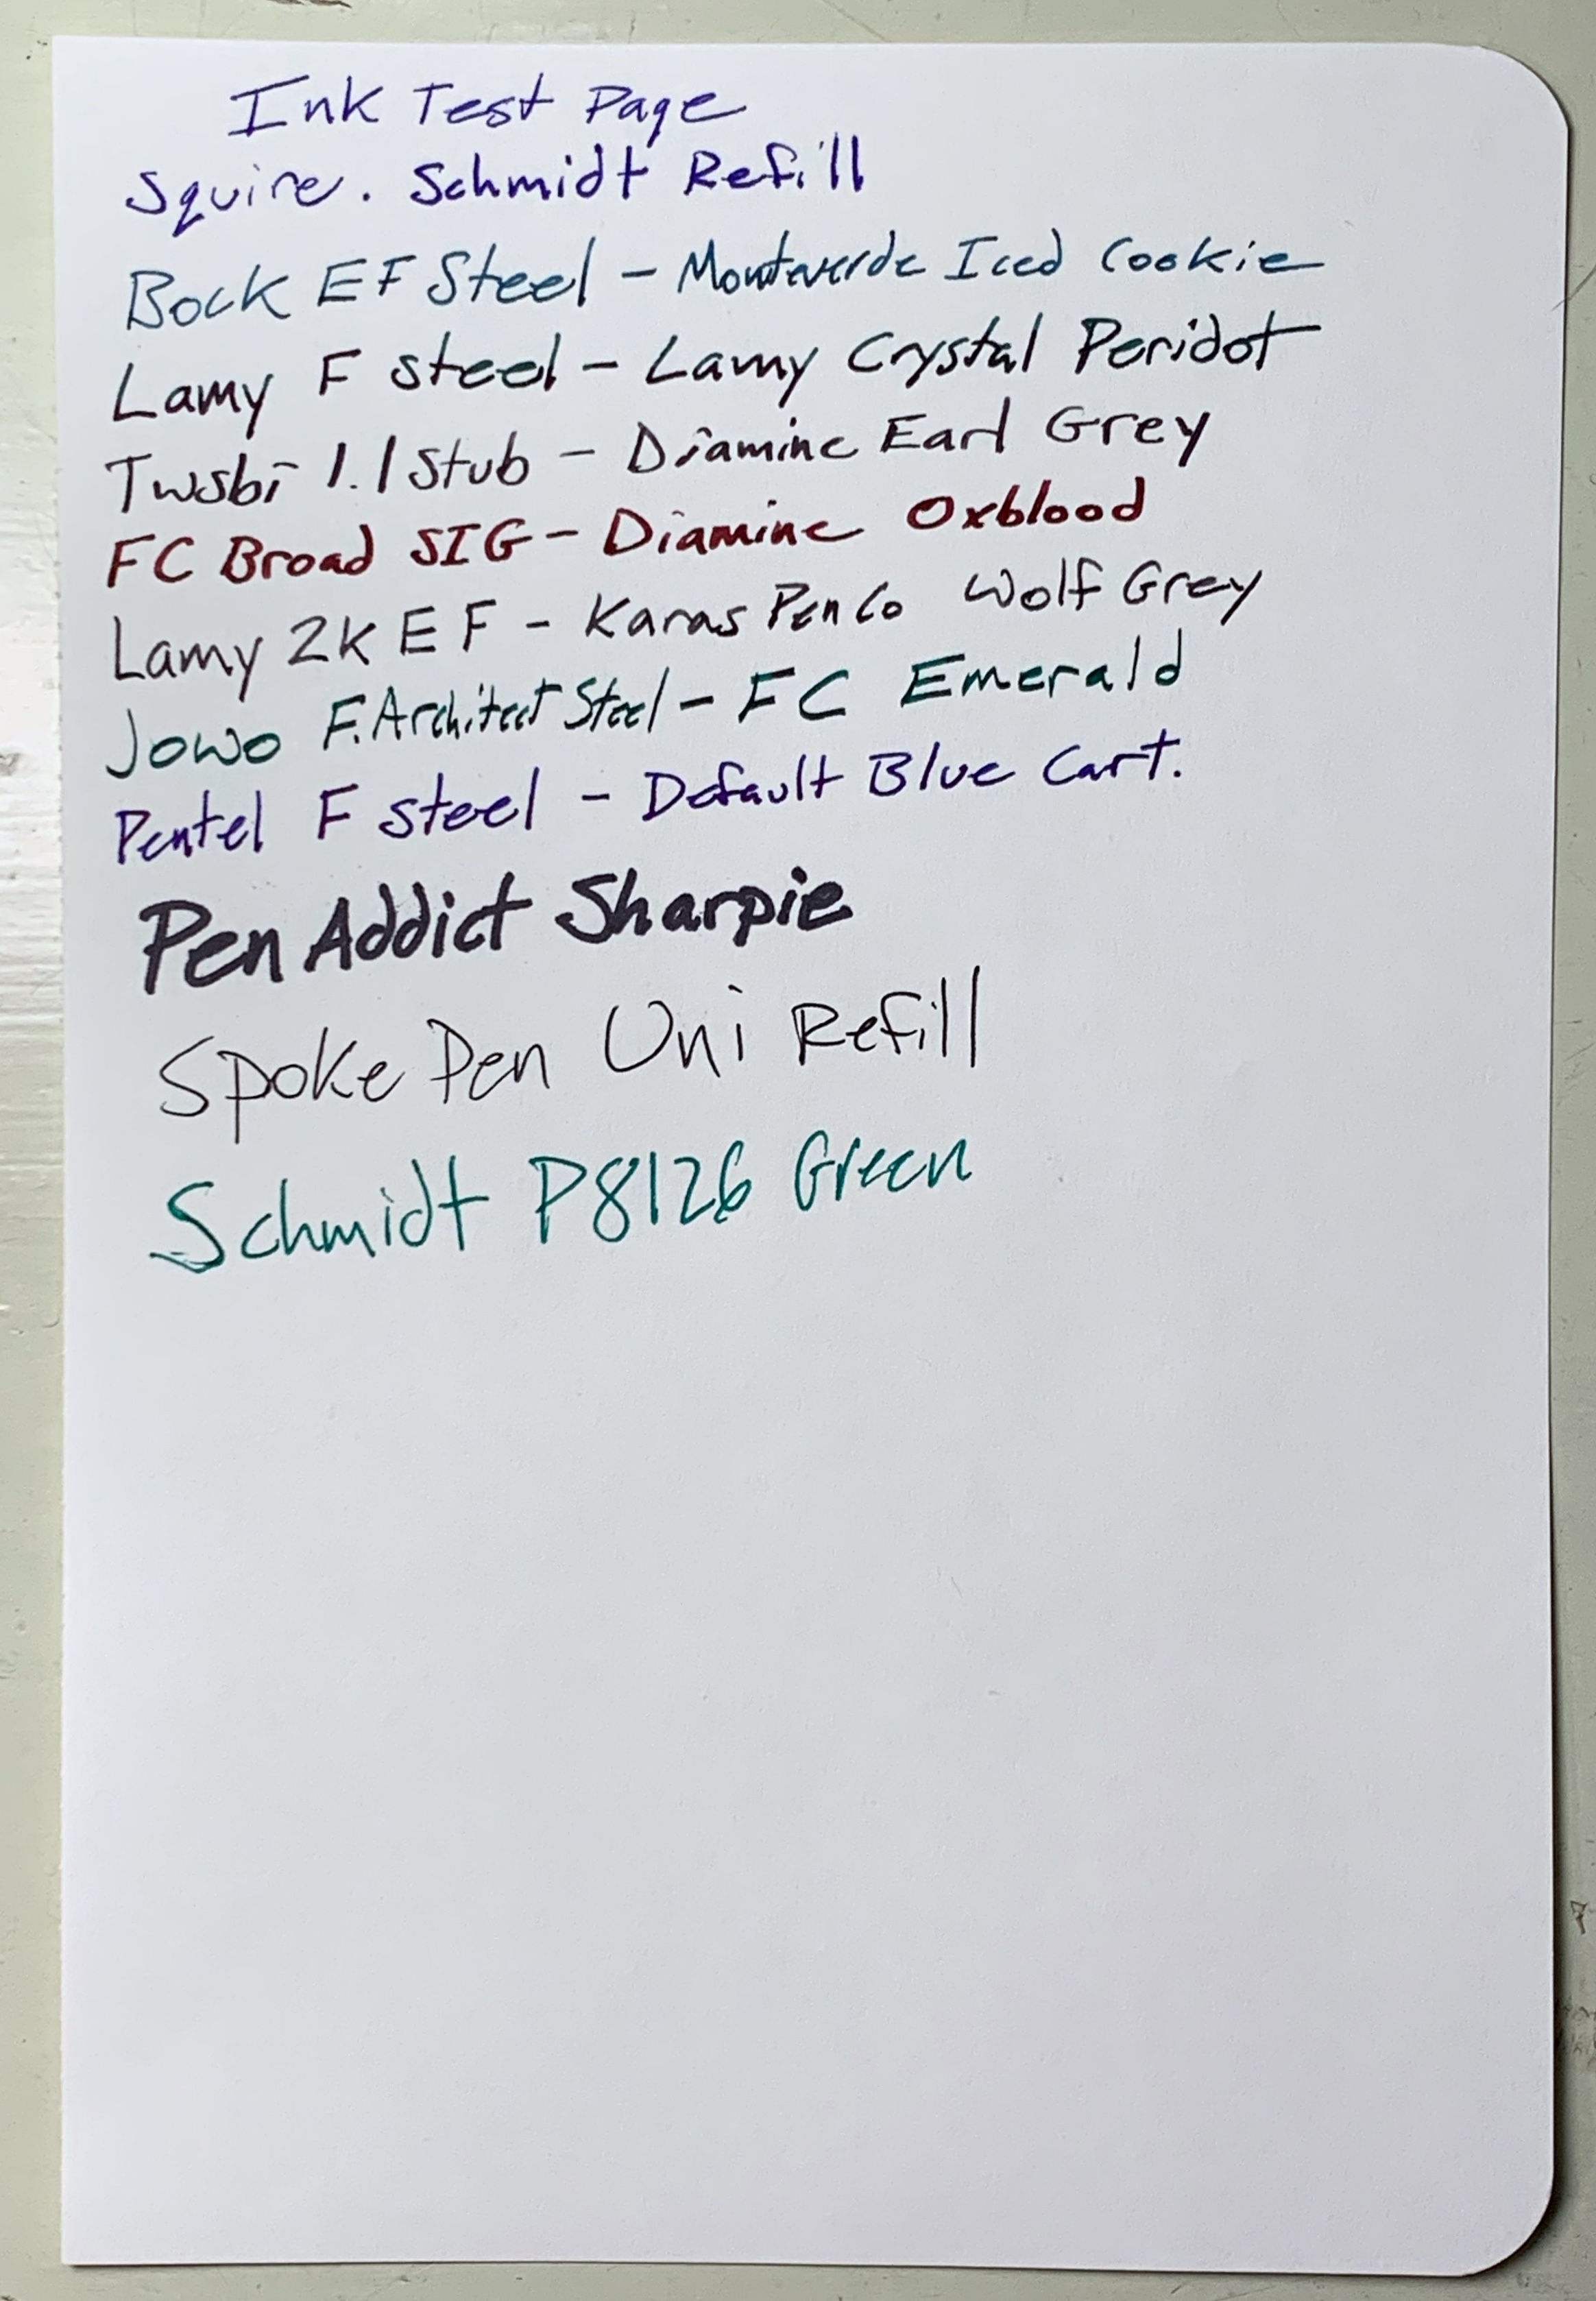 Ink Test Page
Squire. Schmidt Refill
Bock EF Steel - Monteverde Iced Cookie
Lamy F steel - Lamy Crystal Peridot
Twsbi 1.1 Stub - Diamine Earl Grey
FC Broad SIG - Diamine Oxblood
Lamy 2K EF - Karas Pen Co Wolf Grey
Jowo F. Architect Steel - FC Emerald
Pentel F steel - Default Blue Cart.
Pen Addict Sharpie
Spoke Pen Uni Refill
Schmidt P8126 Green